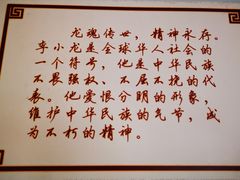 龙魂传世，精神永存。
李小龙是全球华人社会的
一个符号，他是中华民族
不畏强权、不屈不挠的代
表。他爱恨分明的形象，
维护中华民族的气节，成
为不朽的精神。